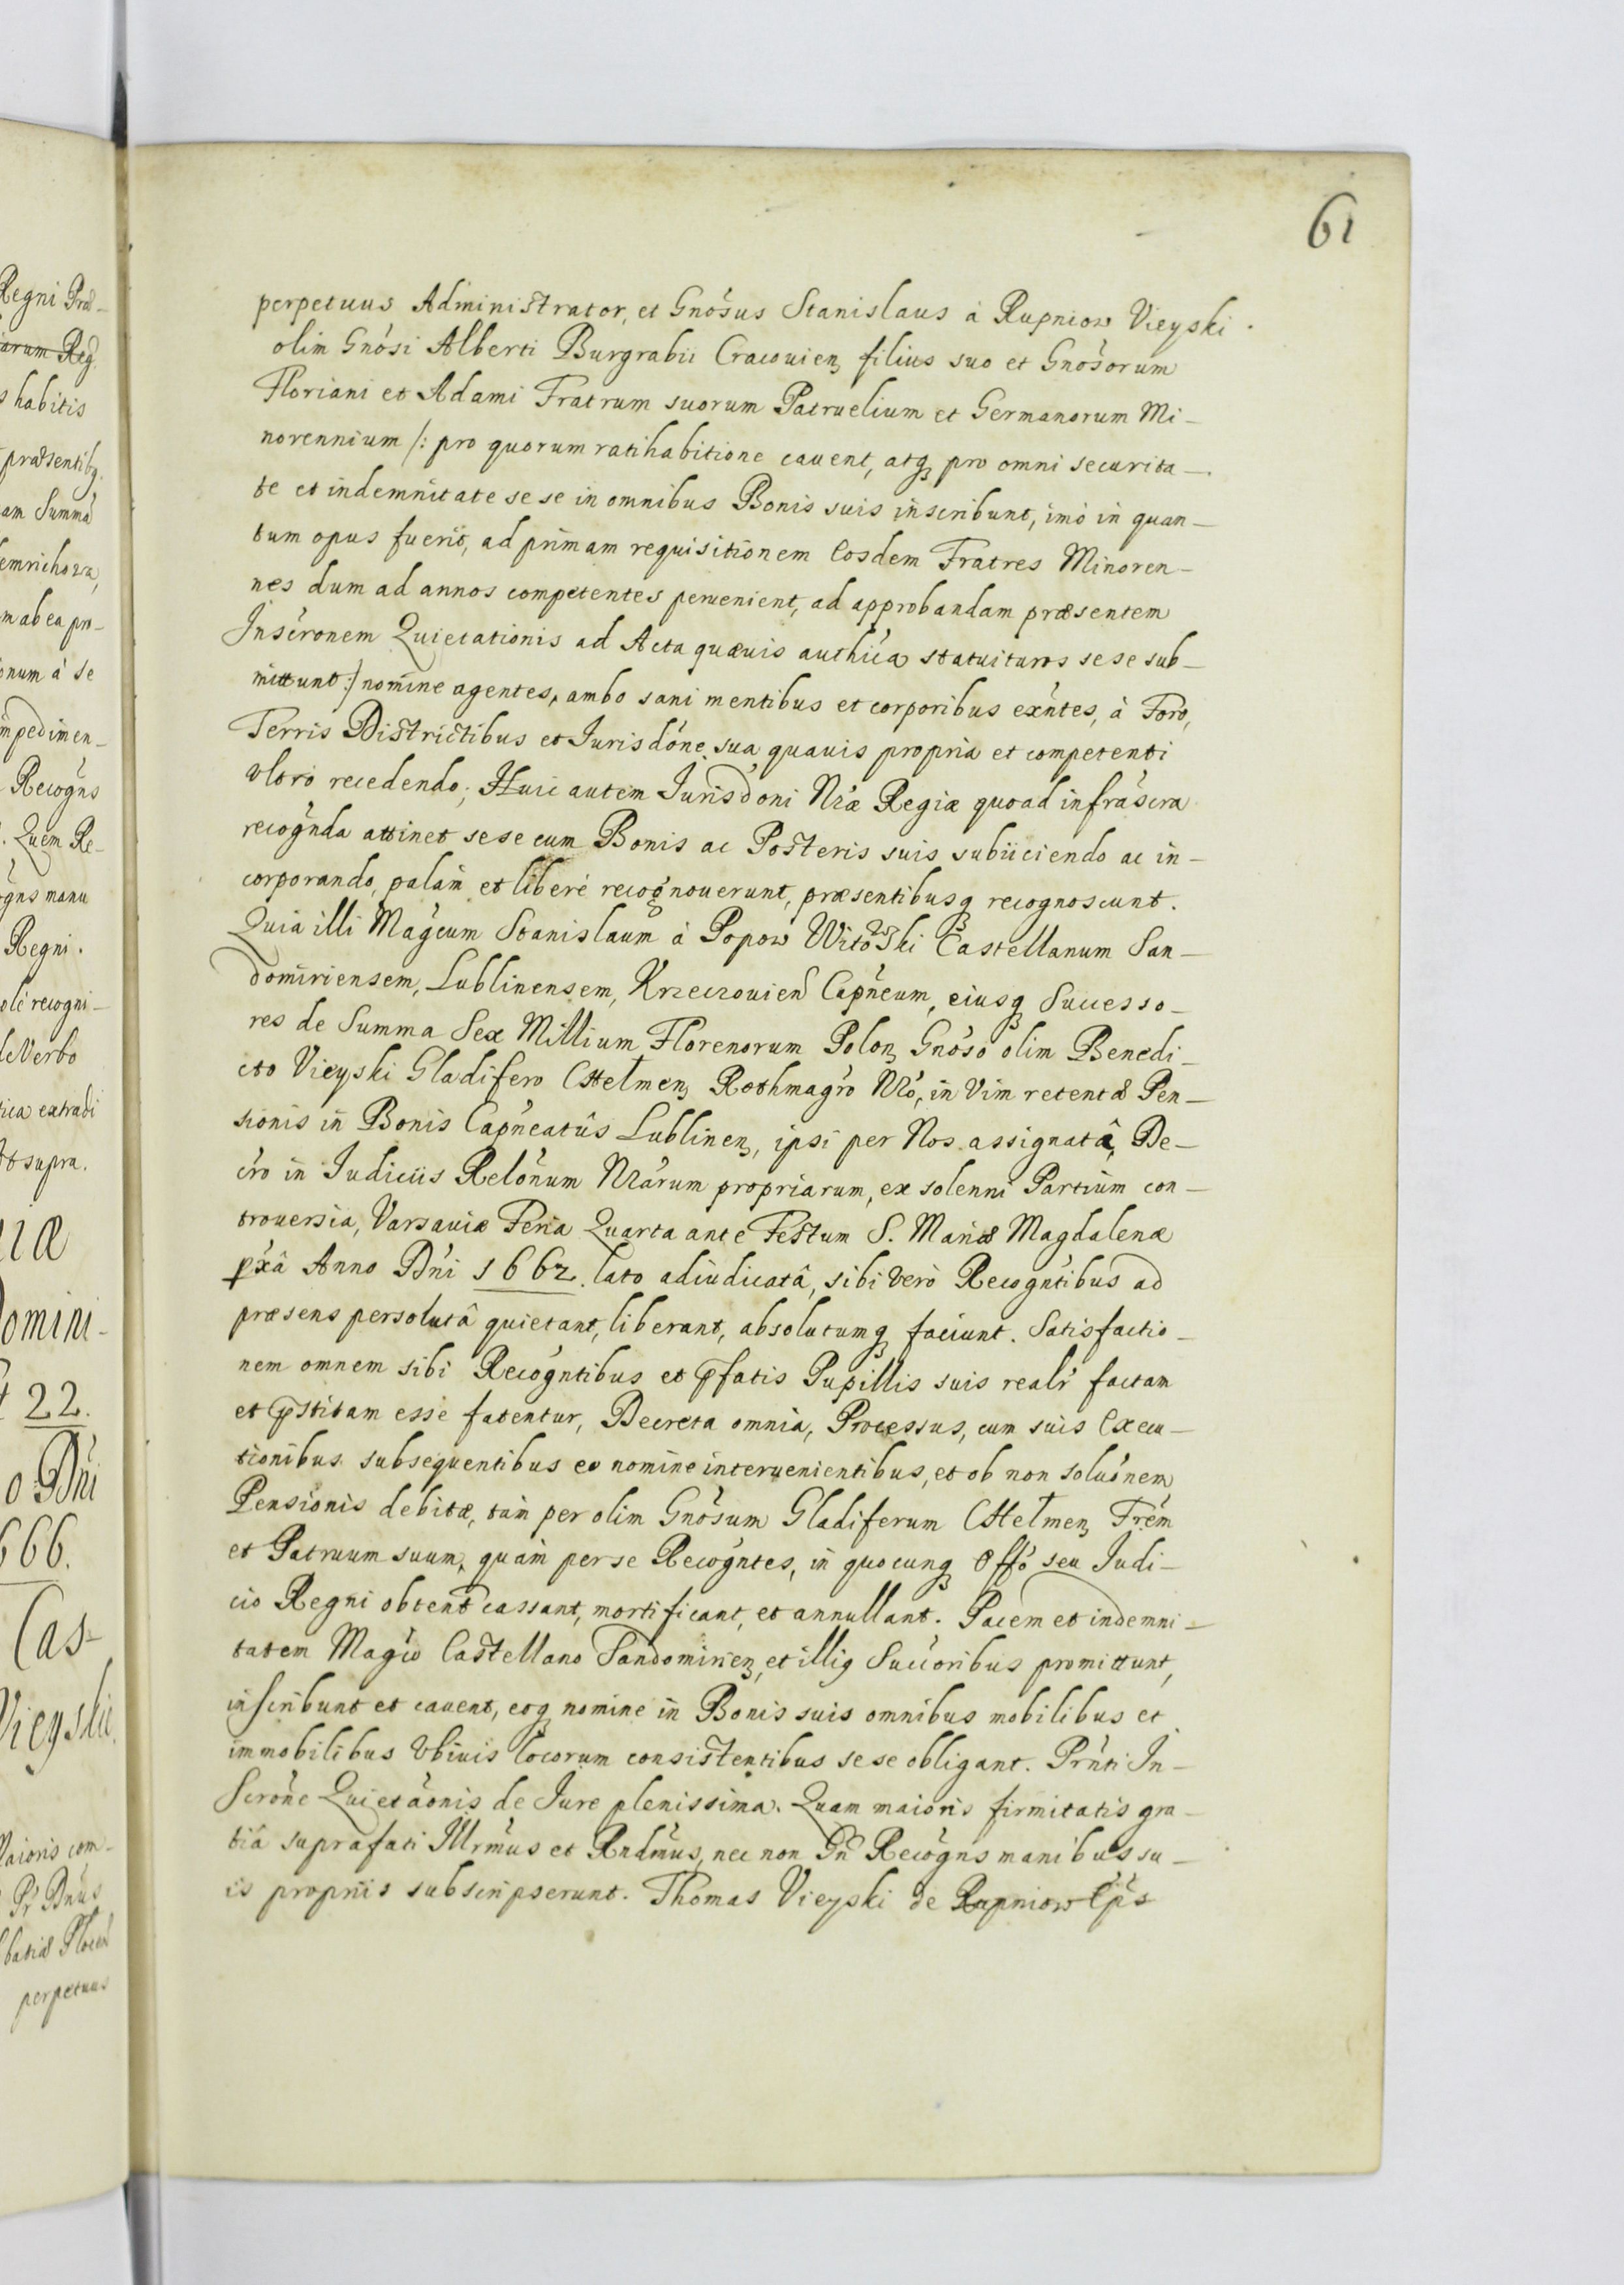 Regni Præ-
arum Reg
habitis
præsentibq
am Summâ
emrichowa,
m ab ea pro-
onum à se
mpedimen-
Recogns
. Quem Re-
ogns manu
Regni.
recogni-
de Verbo
extradi
supra.
iæ
Domini-
22.
o Dni
666.
Cas-
Vieyski
Maioris com-
Pr Dnus
batiæ Ploceñ
perpetuus
61
perpetuus Administrator, et Gnosus Stanislaus à Rupniow Vieyski.
olim Gnosi Alberti Burgrabii Cracouien, filius suo et Gnosorum
Floriani et Adami Fratrum suorum Patruelium et Germanorum Mi-
norennium /: pro quorum ratihabitione cauent, atq pro omni securita-
te et indemnitate se se in omnibus Bonis suis inscribunt, imò in quan-
tum opus fuerit, ad primam requisitionem Eosdem Fratres Minoren-
nes dum ad annos competentes peruenient, ad approbandam præsentem
Inscronem Quietationis ad Acta quæuis authca statuituros sese sub-
mittunt :/ nomine agentes, ambo sani mentibus et corporibus exntes, à Foro,
Terris Districtibus et Jurisdone sua quauis propria et competenti
vltrò recedendo; Huic autem Jurisdoni Nræ Regiæ quoad infrascra
recognda attinet sese cum Bonis ac Posteris suis subiiciendo ac in-
corporando, palàm et liberè recognouerunt, præsentibusq recognoscunt.
Quia illi Magcum Stanislaum à Popow Witowski Castellanum San-
domiriensem, Lublinensem, Krzeczouien Capneum, eiusq Successo-
res de Summa Sex Millium Florenorum Polon, Gnoso olim Benedi-
cto Vieyski Gladifero Chelmen, Rothmagro Nro, in Vim retentæ Pen-
sionis in Bonis Capneatûs Lublinen, ipsi per Nos assignatâ, De-
cro in Judiciis Relonum Nrarum propriarum, ex solenni Partium con-
trouersia, Varsauiæ Feria Quarta ante Festum S. Mariæ Magdalenæ
pxâ Anno Dni 1662. lato adiudicatâ, sibi verò Recogntibus ad
præsens persolutâ quietant, liberant, absolutumq faciunt. Satisfactio-
nem omnem sibi Recogntibus et pfatis Pupillis suis realr factam
et pstitam esse fatentur, Decreta omnia, Processus, cum suis Execu-
tionibus subsequentibus eo nomine interuenientibus, et ob non soluonem
Pensionis debitæ, tàm per olim Gnosum Gladiferum Chelmen, Frem
et Patruum suum, quàm per se Recogntes, in quocunq Offo seu Judi-
cio Regni obtent cassant, mortificant, et annullant. Pacem et indemni-
tatem Magco Castellano Sandomirien, et illiq Succoribus promittunt,
inscribunt et cauent, eoq nomine in Bonis suis omnibus mobilibus et
immobilibus Vbiuis locorum consistentibus sese obligant. Prnti In-
scrone Quietaonis de Jure plenissima. Quam maioris firmitatis gra-
tiâ suprafati Illrmus et Rndmus, nec non Gn Recogns manibus su-
is propriis subscripserunt. Thomas Vieyski de Rupniow Eps